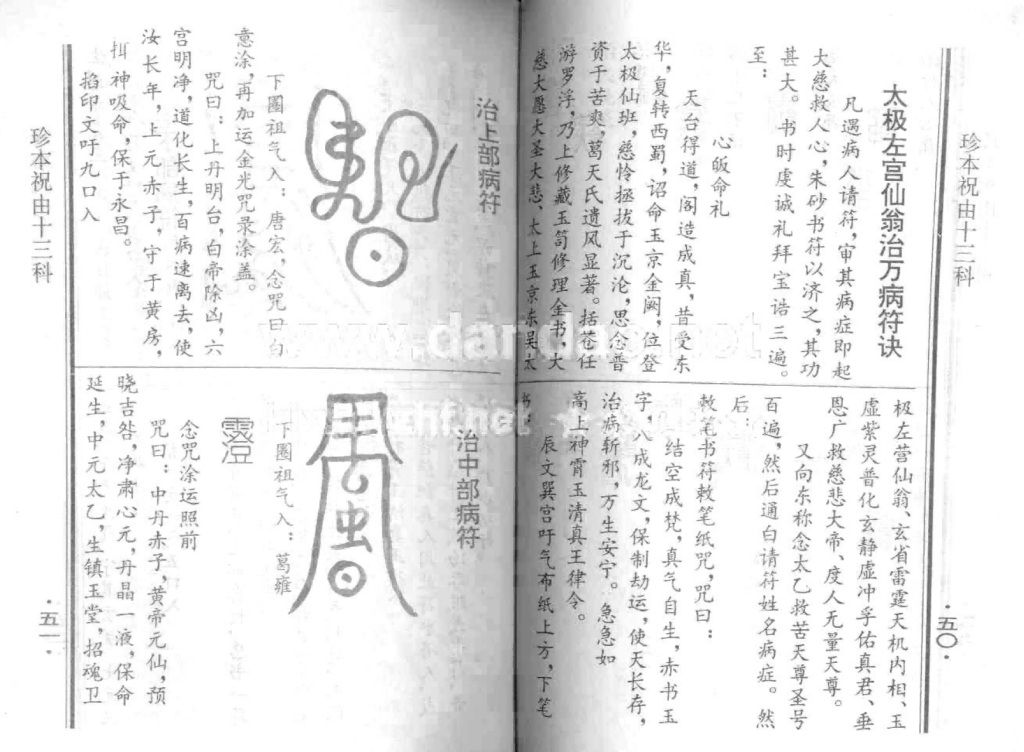 珍本祝由十三科
太极左宫仙翁治万病符诀
凡遇病人请符，审其病症即起
大慈救人心，朱砂书符以济之，其功
甚大。书时虔诚礼拜宝诰三遍。
至：
心皈命礼
天台得道，阁造成真，昔受东
华，复转西蜀，诏命玉京金阙，位登
太极仙班，慈怜拯拔于沉沦，思念普
资于苦爽，葛天氏遗风显著。括苍任
游罗浮，乃上修藏玉笥修理金书，大
慈大愿大圣大悲、太上玉京东吴太
极左营仙翁、玄省雷霆天机内相、玉
虚紫灵普化玄静虚冲孚佑真君、垂
恩广救慈悲大帝、度人无量天尊。
又向东称念太乙救苦天尊圣号
百遍，然后通白请符姓名病症。然
后：
敕笔书符敕笔纸咒，咒曰：
结空成梵，真气自生，赤书玉
字，八成龙文，保制劫运，使天长存，
治病斩邪，万生安宁。急急如
高上神霄玉清真王律令。
辰文巽宫吁气布纸上方，下笔
书：
·五〇·
治上部病符
下圈祖气入：唐宏，念咒曰白
意涂，再加运金光咒录涂盖。
咒曰：上丹明台，白帝除凶，六
宫明净，道化长生，百病速离去，使
汝长年，上元赤子，守于黄房，
揖神吸命，保于永昌。
掐印文吁九口入
治中部病符
下圈祖气入：葛雍
念咒涂运照前
咒曰：中丹赤子，黄帝元仙，预
晓吉咎，净肃心元，丹晶一液，保命
延生，中元太乙，生镇玉堂，招魂卫
珍本祝由十三科
·五一·